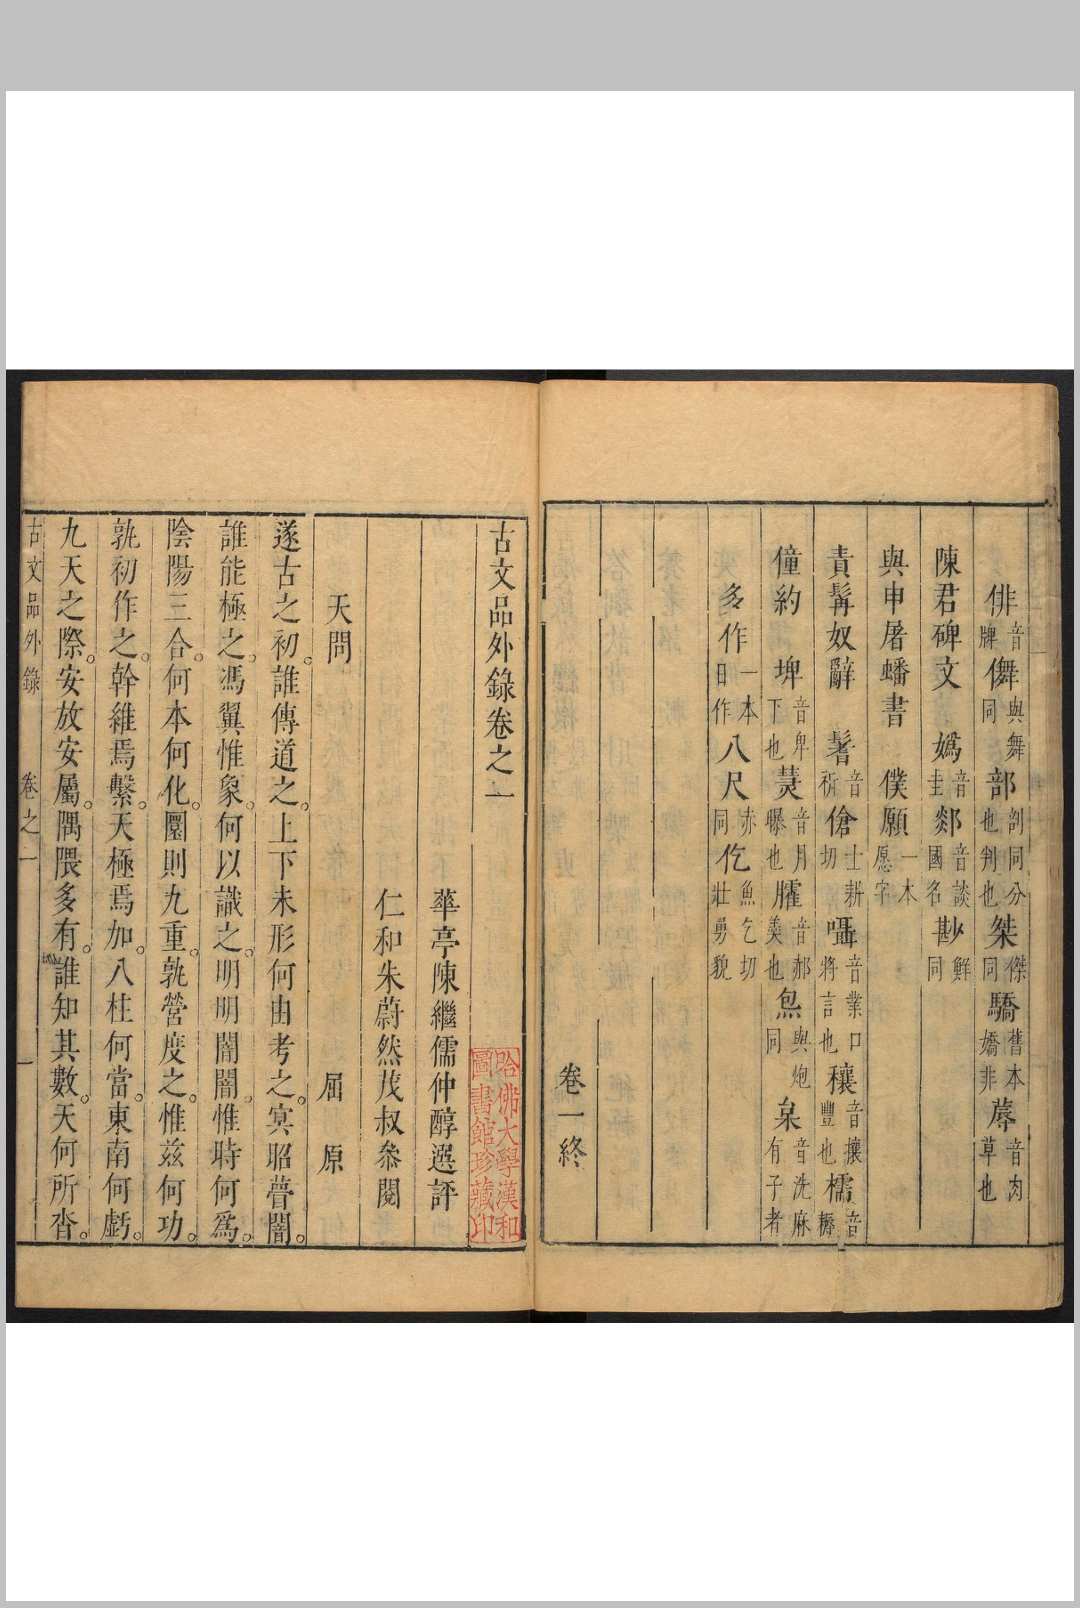 俳音牌儛與舞同部剖同分也判也桀傑同驕舊本嬌非蓐音肉草也
陳君碑文 嬀音圭郯音談國名尠鮮同
與申屠蟠書 僕願一本愿字
責髯奴辭 鬐音祈傖士耕切囁音業口將言也穰音攘豐也檽音耨
僮約 埤音卑下也熭音月曝也臛音郝羹也炰與炮同枲音洗麻有子者
多作一本目作八尺赤同仡魚乞切壯勇貌
卷一終
古文品外錄卷之一
華亭陳繼儒仲醇選評
仁和朱蔚然茂叔叅閱
天問 屈原
遂古之初。誰傳道之。上下未形何由考之。冥昭瞢闇。
誰能極之。馮翼惟象。何以識之。明明闇闇。惟時何爲。
陰陽三合。何本何化。圜則九重。孰營度之。惟茲何功。
孰初作之。幹維焉繫。天極焉加。八柱何當。東南何虧。
九天之際。安放安屬。隅隈多有。誰知其數。天何所沓。
古文品外錄 卷之一 一
哈佛大學漢和圖書館珍藏印